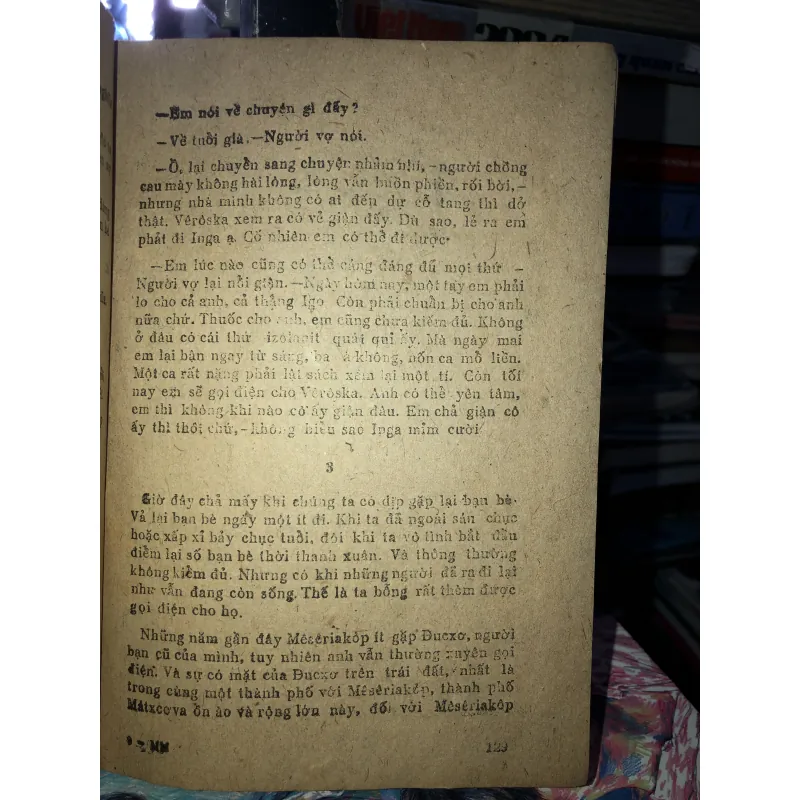 —Em nói về chuyện gì đấy?
—Về tuổi già.—Người vợ nói.
—Ồ, lại chuyển sang chuyện nhảm nhí, —người chồng
cau mày không hài lòng, lòng vẫn buồn phiền, rối bời,—
nhưng nhà mình không có ai đến dự cỗ tang thì dở
thật. Vêrôska xem ra có vẻ giận đấy. Dù sao, lẽ ra em
phải đi Inga ạ. Cố nhiên em có thể đi được.
—Em lúc nào cũng có thể cáng đáng đủ mọi thứ —
Người vợ lại nổi giận.—Ngày hôm nay, một tay em phải
lo cho cả anh, cả thằng Igo. Còn phải chuẩn bị cho anh
nữa chứ. Thuốc cho anh, em cũng chưa kiếm đủ. Không
ở đâu có cái thứ izolanit quái quỉ ấy. Mà ngày mai
em lại bận ngay từ sáng, ba không, bốn ca mổ liền.
Một ca rất nặng phải lại sách xem lại một tí. Còn tối
nay em sẽ gọi điện cho Vêrôska. Anh có thể yên tâm,
em thì không khi nào cô ấy giận đâu. Em chả giận cô
ấy thì thôi chứ,—không hiểu sao Inga mỉm cười.
3
Giờ đây chả mấy khi chúng ta có dịp gặp lại bạn bè.
Vả lại bạn bè ngày một ít đi. Khi ta đã ngoài sáu chục
hoặc xấp xỉ bảy chục tuổi, đôi khi ta vô tình bắt đầu
điểm lại số bạn bè thời thanh xuân. Và thông thường
không kiểm đủ. Nhưng có khi những người đã ra đi lại
như vẫn đang còn sống. Thế là ta bỗng rất thèm được
gọi điện cho họ.
Những năm gần đây Mêsêriakôp ít gặp Đucxơ, người
bạn cũ của mình, tuy nhiên anh vẫn thường xuyên gọi
điện. Và sự có mặt của Đucxơ trên trái đất, nhất là
trong cùng một thành phố với Mêsêriakôp, thành phố
Mátxcơva ồn ào và rộng lớn này, đối với Mêsêriakôp
9 — MM 129